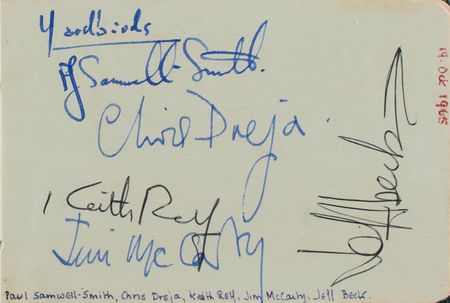 Yardbirds
P Samwell-Smith.
Chris Dreja.
Keith Relf
Jim McCarty
Jeff Beck
19. Oct 1965
Paul Samwell-Smith, Chris Dreja, Keith Relf, Jim McCarty, Jeff Beck.